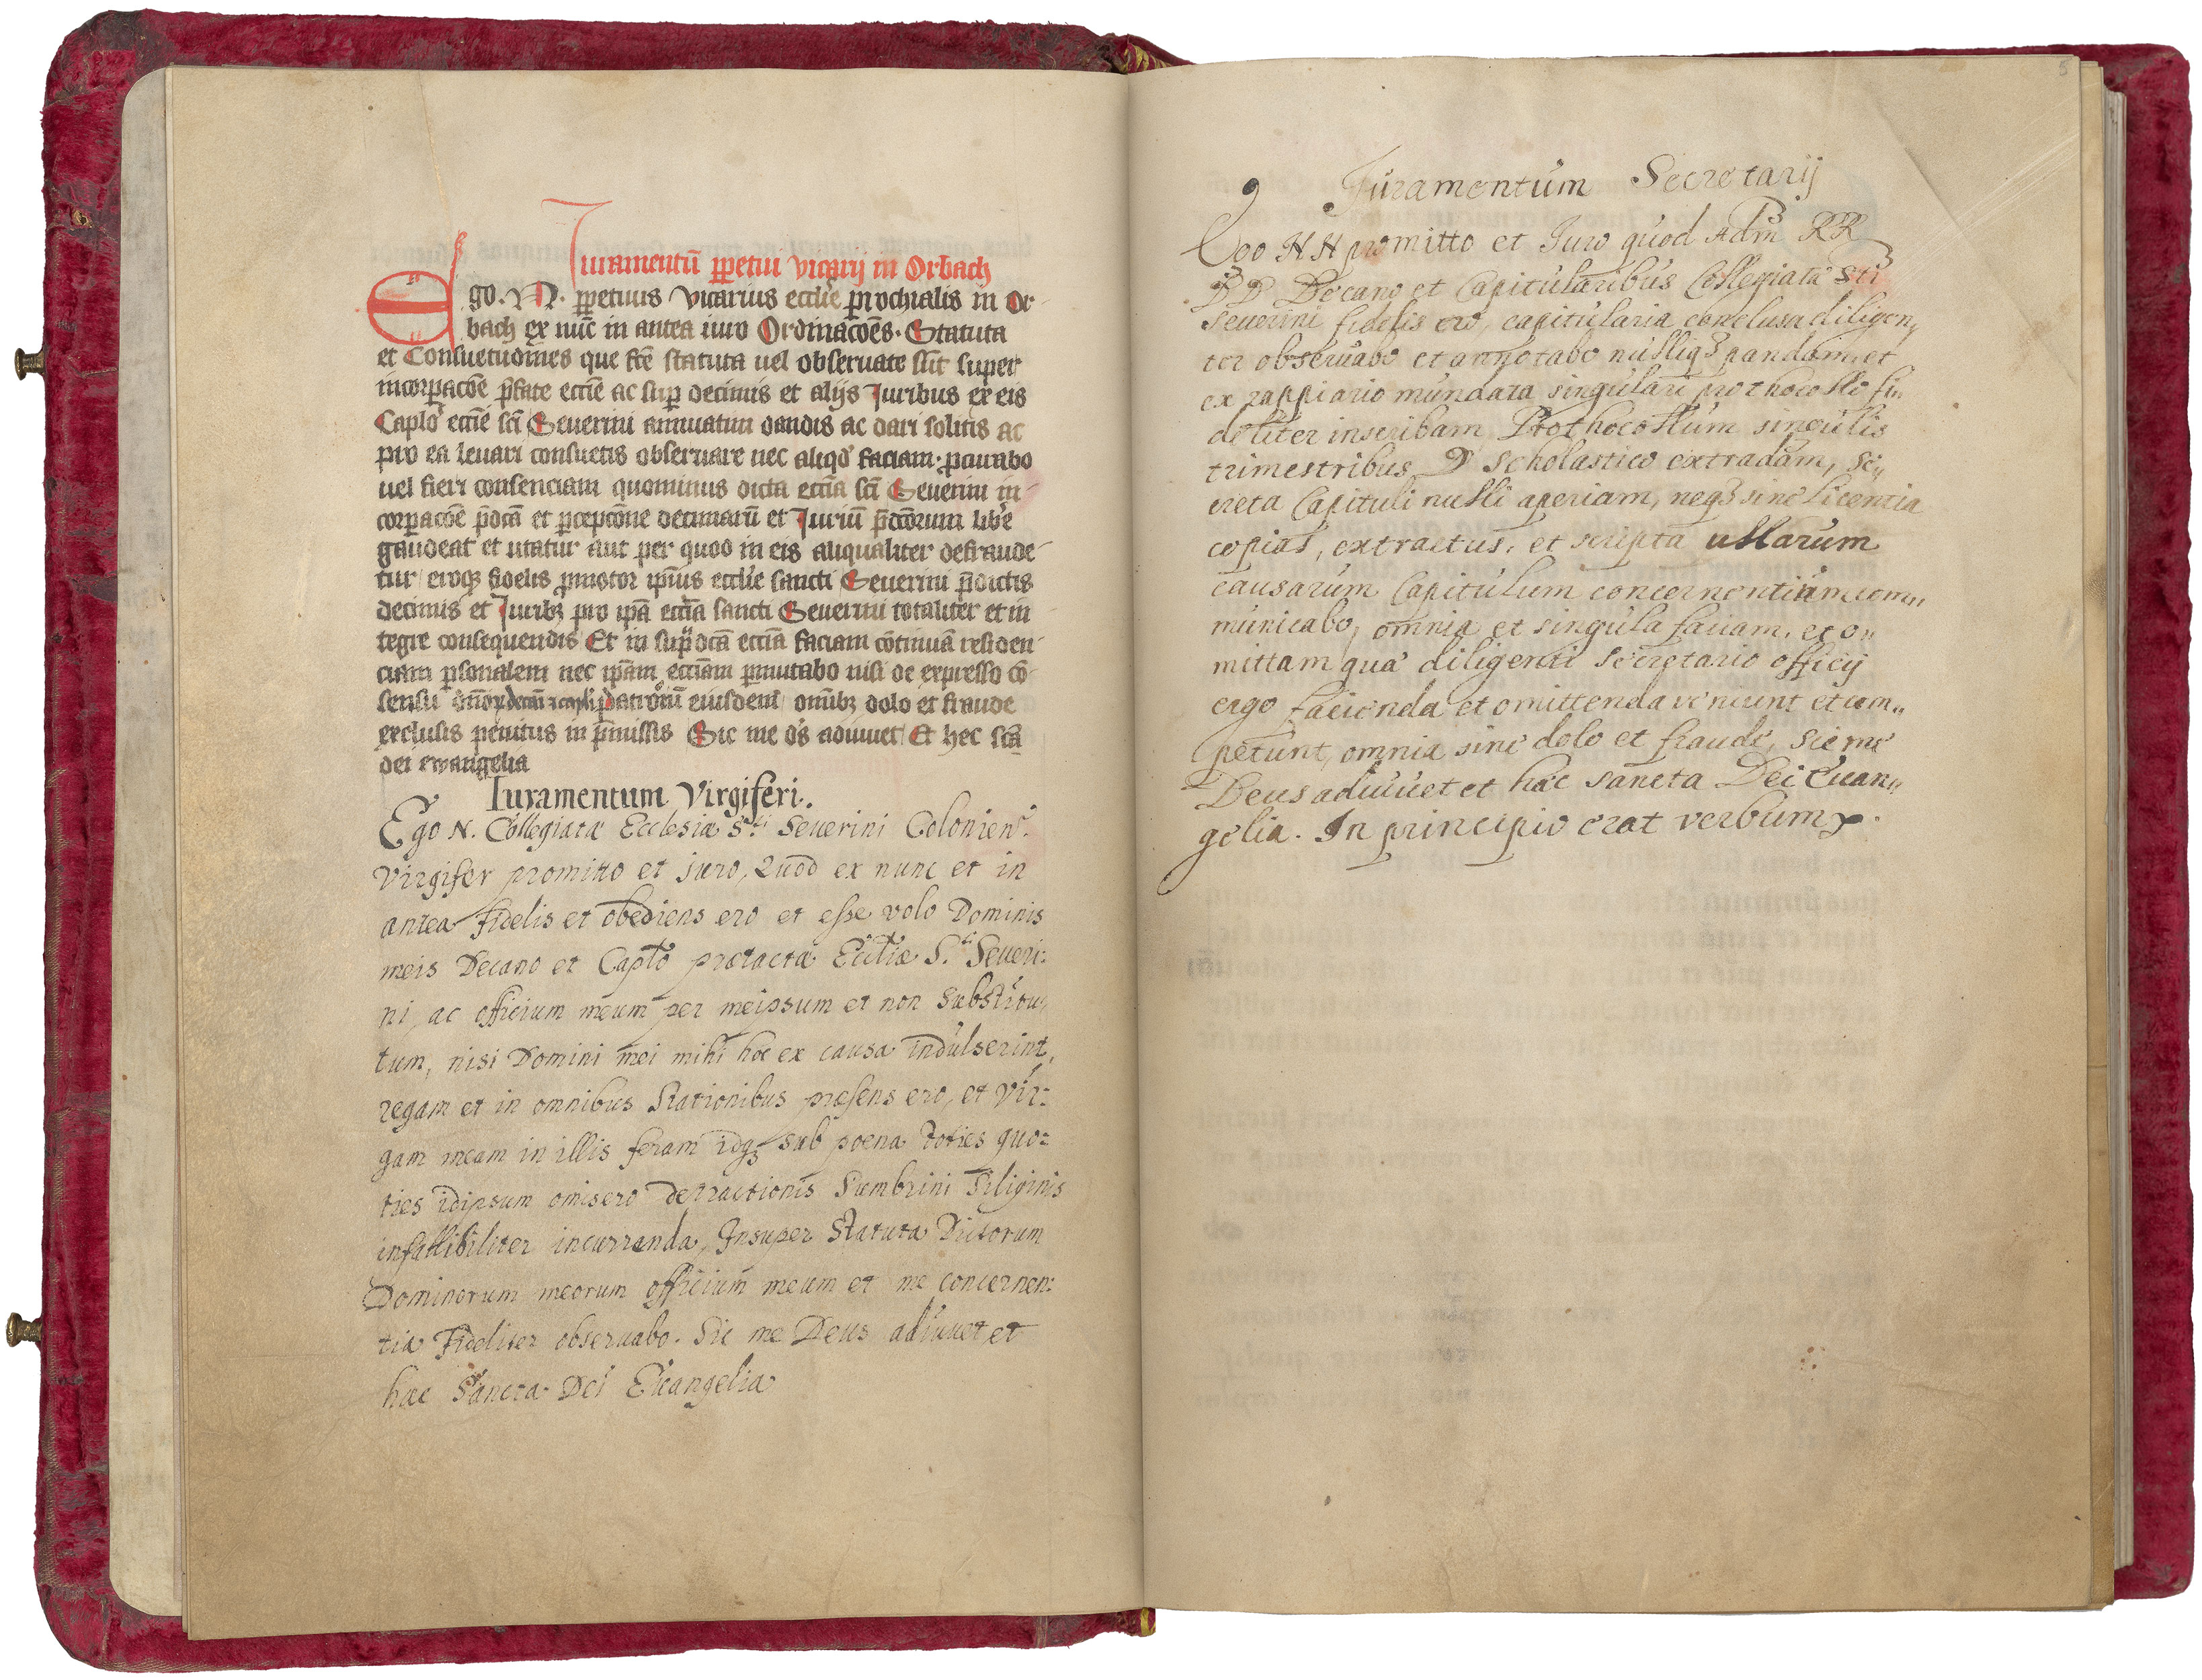 Iuramentū ꝑpetui vicarij in Orbach
Ego .N. ꝑpetuus vicarius ecclie ꝑrochialis in Or-
bach ex nūc in antea iuro Ordinacōes. Statuta
et Consuetudines que fcē statuta uel obseruate sūt super
incorꝑacōe ꝑfate eccīe ac suꝑ decimis et alijs Juribus ex eis
Caplo eccīe scī Seuerini annuatim dandis ac dari solitis ac
pro ea leuari consuetis obseruare nec aliqd faciam. ꝓcurabo
uel fieri consenciam quominus dicta eccīa scī Seuerini in-
corꝑacōe p̄dcā et ꝑcepcōne decimarū et Juriū p̄dcōrum libe
gaudeat et utatur aut per quod in eis aliqualiter defraude-
tur eroqꝫ fidelis ꝓmotor ipīus ecclie sancti Seuerini p̄dictis
decimis et Juribꝫ pro ipā eccīa sancti Seuerini totaliter et in
tegre consequendis Et in sup̄dcā eccīa faciam cōtinuā residen-
ciam ꝑsonalem nec ipām eccīam ꝑmutabo nisi de expresso cō-
sensu dn̄oꝝ decani et capli patronū eiusdem omībꝫ dolo et fraude
exclusis penitus in p̄missis Sic me ds adiuuet Et hec scā
dei ewangelia
Iuramentum Virgiferi.
Ego N. Collegiatæ Ecclesiæ S.ti Seuerini Coloniens.
Virgifer promitto et juro, Quod ex nunc et in
antea fidelis et obediens ero et esse volo Dominis
meis Decano et Caplo prætactæ Eccliæ S.ti Seueri-
ni, ac officium meum per meipsum et non substitu-
tum, nisi Domini mei mihi hoc ex causa indulserint,
regam et in omnibus Stationibus præsens ero, et Vir-
gam meam in illis feram idqꝫ sub poena toties quo-
ties idipsum omisero detractionis Sumbrini Siliginis
infallibiliter incurrenda, Insuper Statuta Dictorum
Dominorum meorum officium meum et me concernen-
tia Fideliter obseruabo. Sic me Deus adiuuet et
hæc Sancta Dei Euangelia
5
Juramentum Secretarij
Ego N N promitto et Juro quod Adm RR
DD Decano et Capitularibus Collegiatæ Sti
Seuerini fidelis ero, capitularia conclusa diligen„
ter obseruabo et annotabo nulliqꝫ pandam, et
ex rappiario mundata singulari prothocollo fi„
deliter inscribam, Prothocollum singulis
trimestribus D Scholastico extradam, se„
creta Capituli nulli aperiam, neqꝫ sine licentia
copias, extractus, et scripta ullarum
causarum Capitulum concernentium com„
municabo, omnia et singula faciam, et o„
mittam quæ diligenti secretario officij
ergo facienda et omittenda veniunt et com„
petunt, omnia sine dolo et fraude, sic me
Deus adiuuet et hæc sancta Dei Euan„
gelia. In principio erat verbum